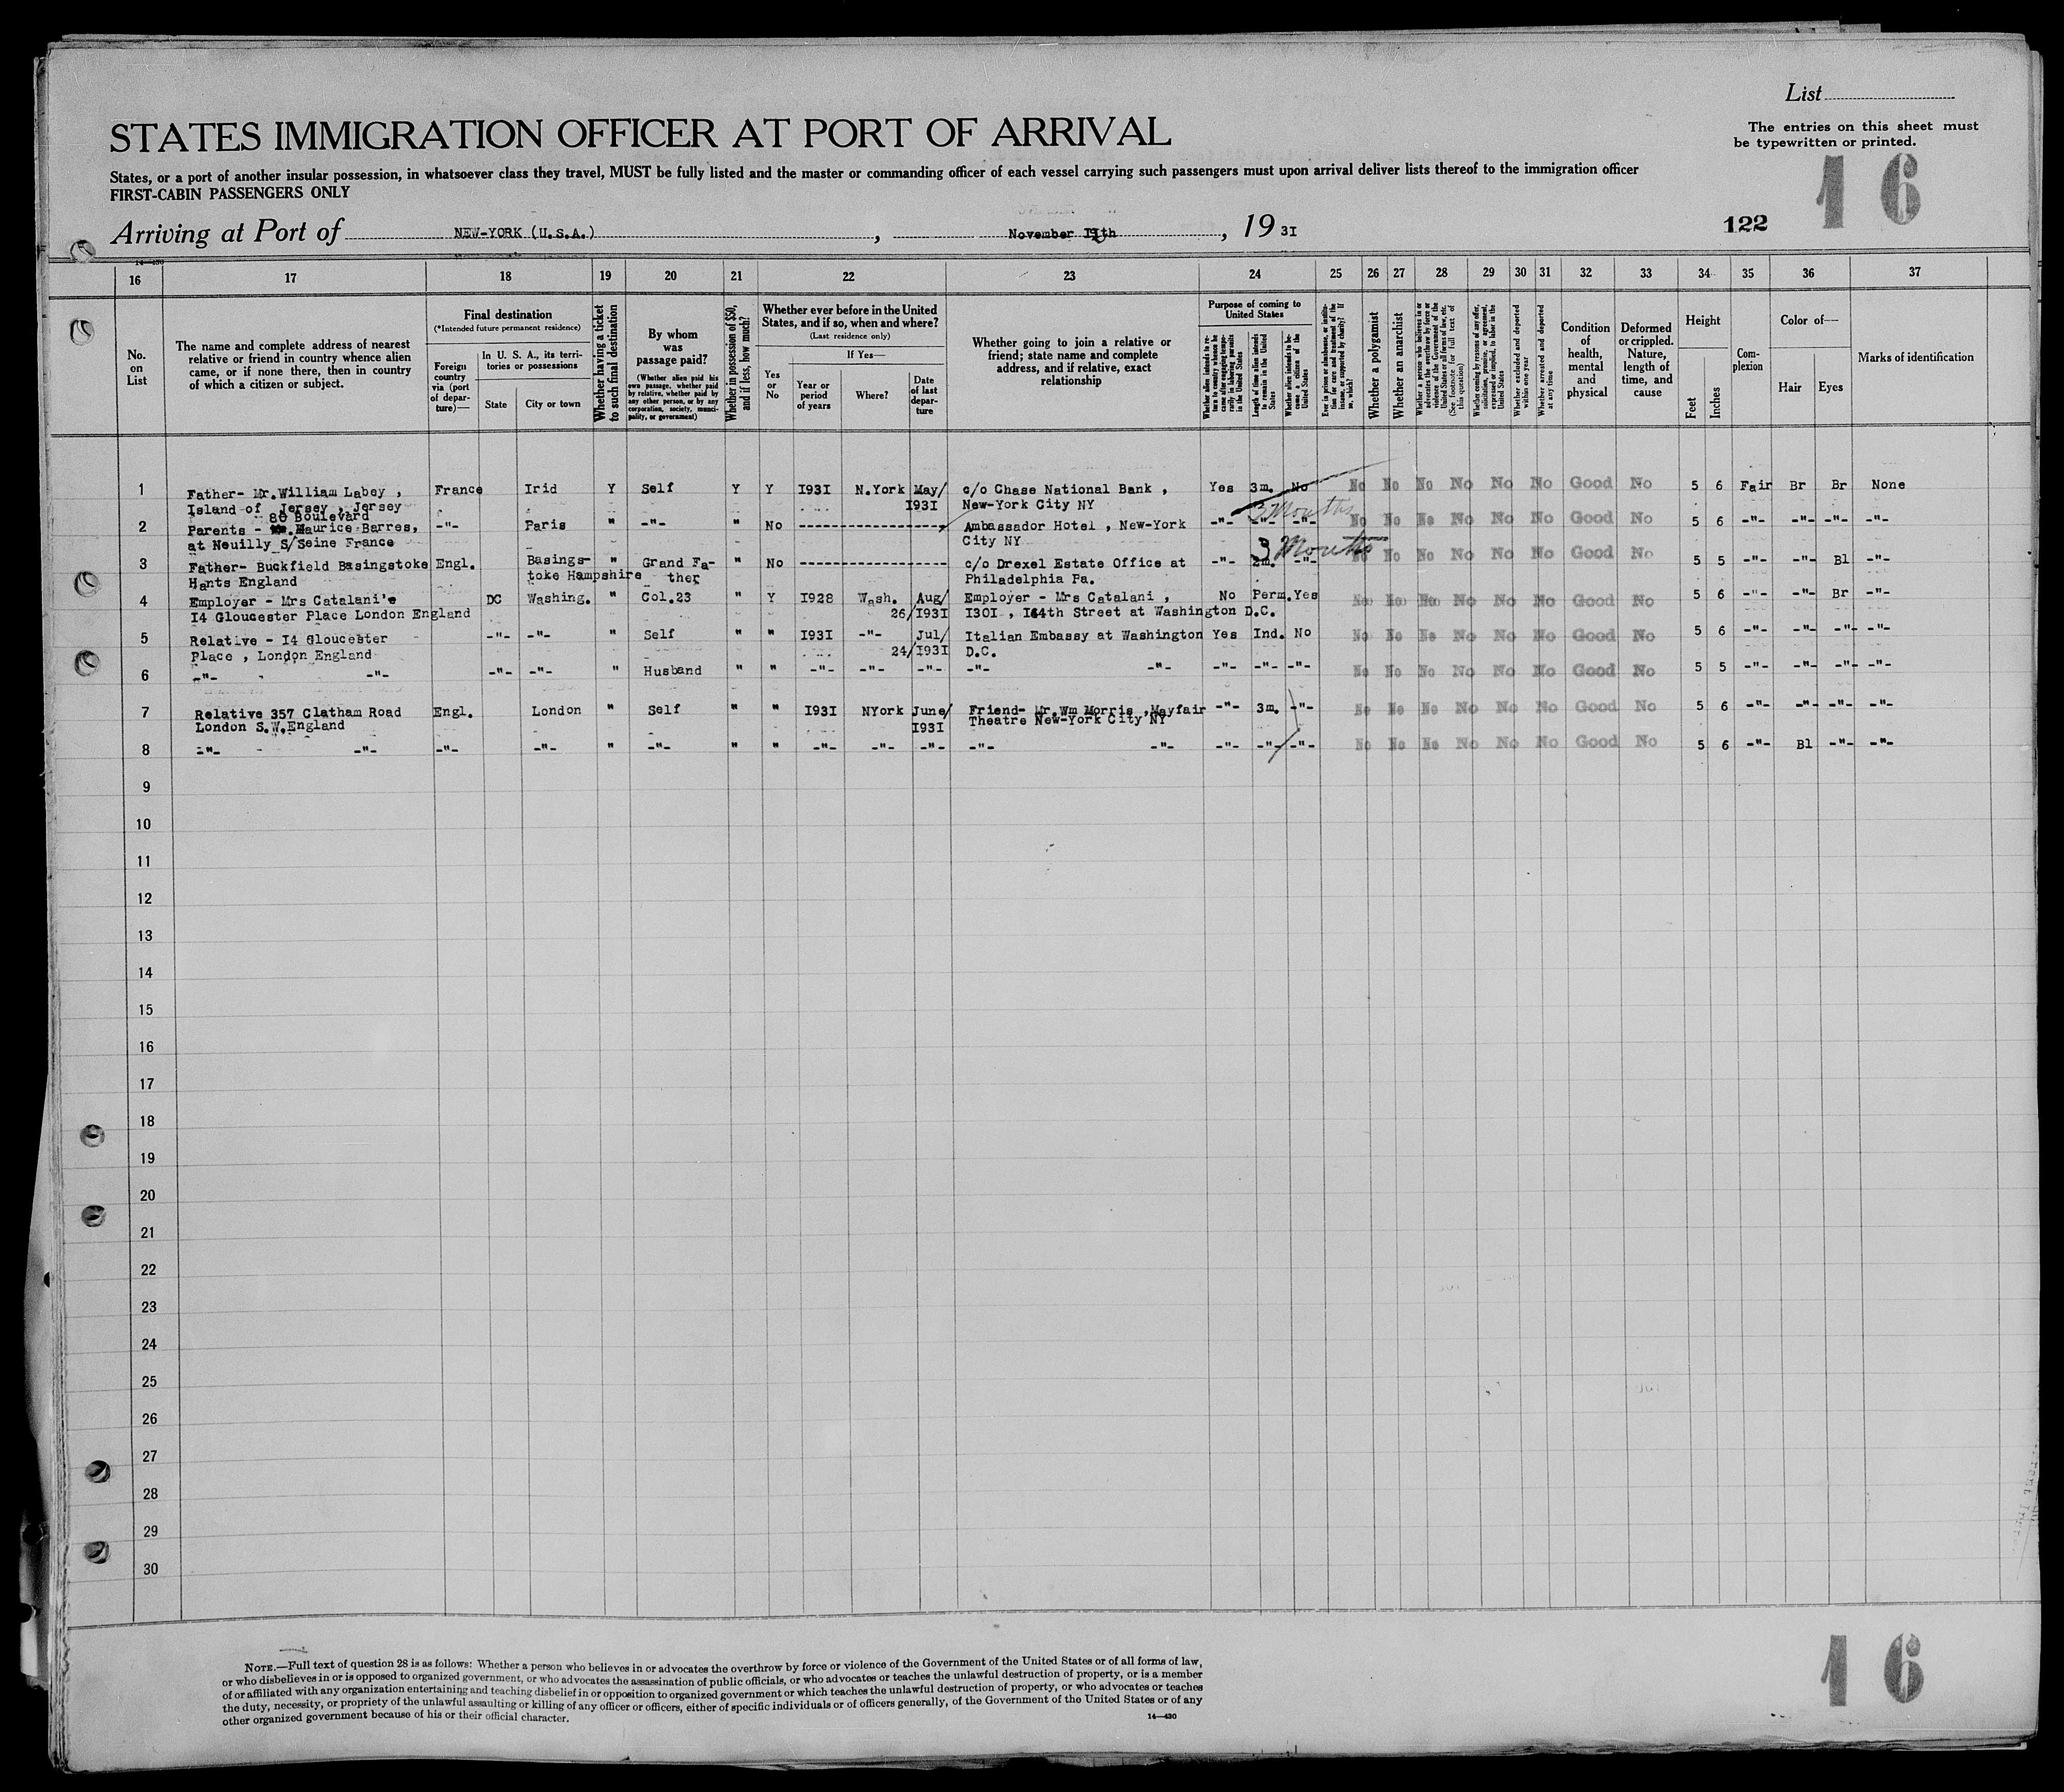 List
STATES IMMIGRATION OFFICER AT PORT OF ARRIVAL
The entries on this sheet must
be typewritten or printed.
States, or a port of another insular possession, in whatsoever class they travel, MUST be fully listed and the master or commanding officer of each vessel carrying such passengers must upon arrival deliver lists thereof to the immigration officer
FIRST-CABIN PASSENGERS ONLY
16
Arriving at Port of NEW-YORK (U.S.A.) , November , 19 3I
122
14—430
16 17 18 19 20 21 22 23 24 25 26 27 28 29 30 31 32 33 34 35 36 37
No. on List
The name and complete address of nearest
relative or friend in country whence alien
came, or if none there, then in country
of which a citizen or subject.
Final destination
(*Intended future permanent residence)
Foreign country via (port of departure)—
In U. S. A., its territories or possessions
State
City or town
Whether having a ticket to such final destination
By whom was passage paid?
(Whether alien paid his own passage, whether paid by relative, whether paid by any other person, or by any corporation, society, municipality, or government)
Whether in possession of $50, and if less, how much?
Whether ever before in the United States, and if so, when and where?
(Last residence only)
If Yes—
Yes or No
Year or period of years
Where?
Date of last departure
Whether going to join a relative or
friend; state name and complete
address, and if relative, exact
relationship
Purpose of coming to United States
Whether alien intends to return to country whence he came after engaging temporarily in laboring pursuits in the United States
Length of time alien intends to remain in the United States
Whether alien intends to become a citizen of the United States
Ever in prison or almshouse, or institution for care and treatment of the insane, or supported by charity? If so, which?
Whether a polygamist
Whether an anarchist
Whether a person who believes in or advocates the overthrow by force or violence of the Government of the United States or all forms of law, etc. (See footnote for full text of this question)
Whether coming by reason of any offer, solicitation, promise, or agreement, expressed or implied, to labor in the United States
Whether excluded and deported within one year
Whether arrested and deported at any time
Condition of health, mental and physical
Deformed or crippled. Nature, length of time, and cause
Height
Feet
Inches
Complexion
Color of—
Hair
Eyes
Marks of identification
1 Father- Mr.William Labey , France Irid Y Self Y Y I93I N.York May/ c/o Chase National Bank , Yes 3m. No No No No No No No Good No 5 6 Fair Br Br None
Island of Jersey , Jersey I93I New-York City NY 3 Months
80 Boulevard
2 Parents - Maurice Barres, -"- Paris " -"- " No ---------------- Ambassador Hotel , New-York -"- -"- -"- No No No No No No Good No 5 6 -"- -"- -"- -"-
at Neuilly S/Seine France City NY 3 Months
3 Father- Buckfield Basingstoke Engl. Basings- " Grand Fa- " No ---------------- c/o Drexel Estate Office at -"- 2m. -"- No No No No No No Good No 5 5 -"- -"- Bl -"-
Hants England toke Hampshire ther Philadelphia Pa.
4 Employer - Mrs Catalani's DC Washing. " Col.23 " Y I928 Wash. Aug/ Employer - Mrs Catalani , No Perm. Yes No No No No No No Good No 5 6 -"- -"- Br -"-
I4 Gloucester Place London England 26/I93I I30I , I64th Street at Washington D.C.
5 Relative - I4 Gloucester -"- -"- " Self " " I93I -"- Jul/ Italian Embassy at Washington Yes Ind. No No No No No No No Good No 5 6 -"- -"- -"- -"-
Place , London England 24/I93I D.C.
6 -"- -"- -"- -"- " Husband " " -"- -"- -"- -"- -"- -"- -"- -"- No No No No No No Good No 5 5 -"- -"- -"- -"-
7 Relative 357 Clatham Road Engl. London " Self " " I93I NYork June/ Friend- Mr.Wm Morris ,Mayfair -"- 3m. -"- No No No No No No Good No 5 6 -"- -"- -"- -"-
London S.W.England I93I Theatre New-York City NY
8 -"- -"- -"- -"- " -"- " " -"- -"- -"- -"- -"- -"- -"- -"- No No No No No No Good No 5 6 -"- Bl -"- -"-
9
10
11
12
13
14
15
16
17
18
19
20
21
22
23
24
25
26
27
28
29
30
NOTE.—Full text of question 28 is as follows: Whether a person who believes in or advocates the overthrow by force or violence of the Government of the United States or of all forms of law,
or who disbelieves in or is opposed to organized government, or who advocates the assassination of public officials, or who advocates or teaches the unlawful destruction of property, or is a member
of or affiliated with any organization entertaining and teaching disbelief in or opposition to organized government or which teaches the unlawful destruction of property, or who advocates or teaches
the duty, necessity, or propriety of the unlawful assaulting or killing of any officer or officers, either of specific individuals or of officers generally, of the Government of the United States or of any
other organized government because of his or their official character.
14—430
16